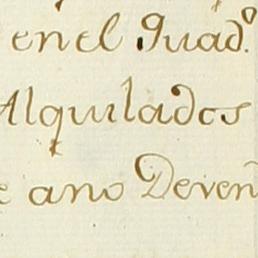 en el Quad.º
Alquilados
e ano Deven